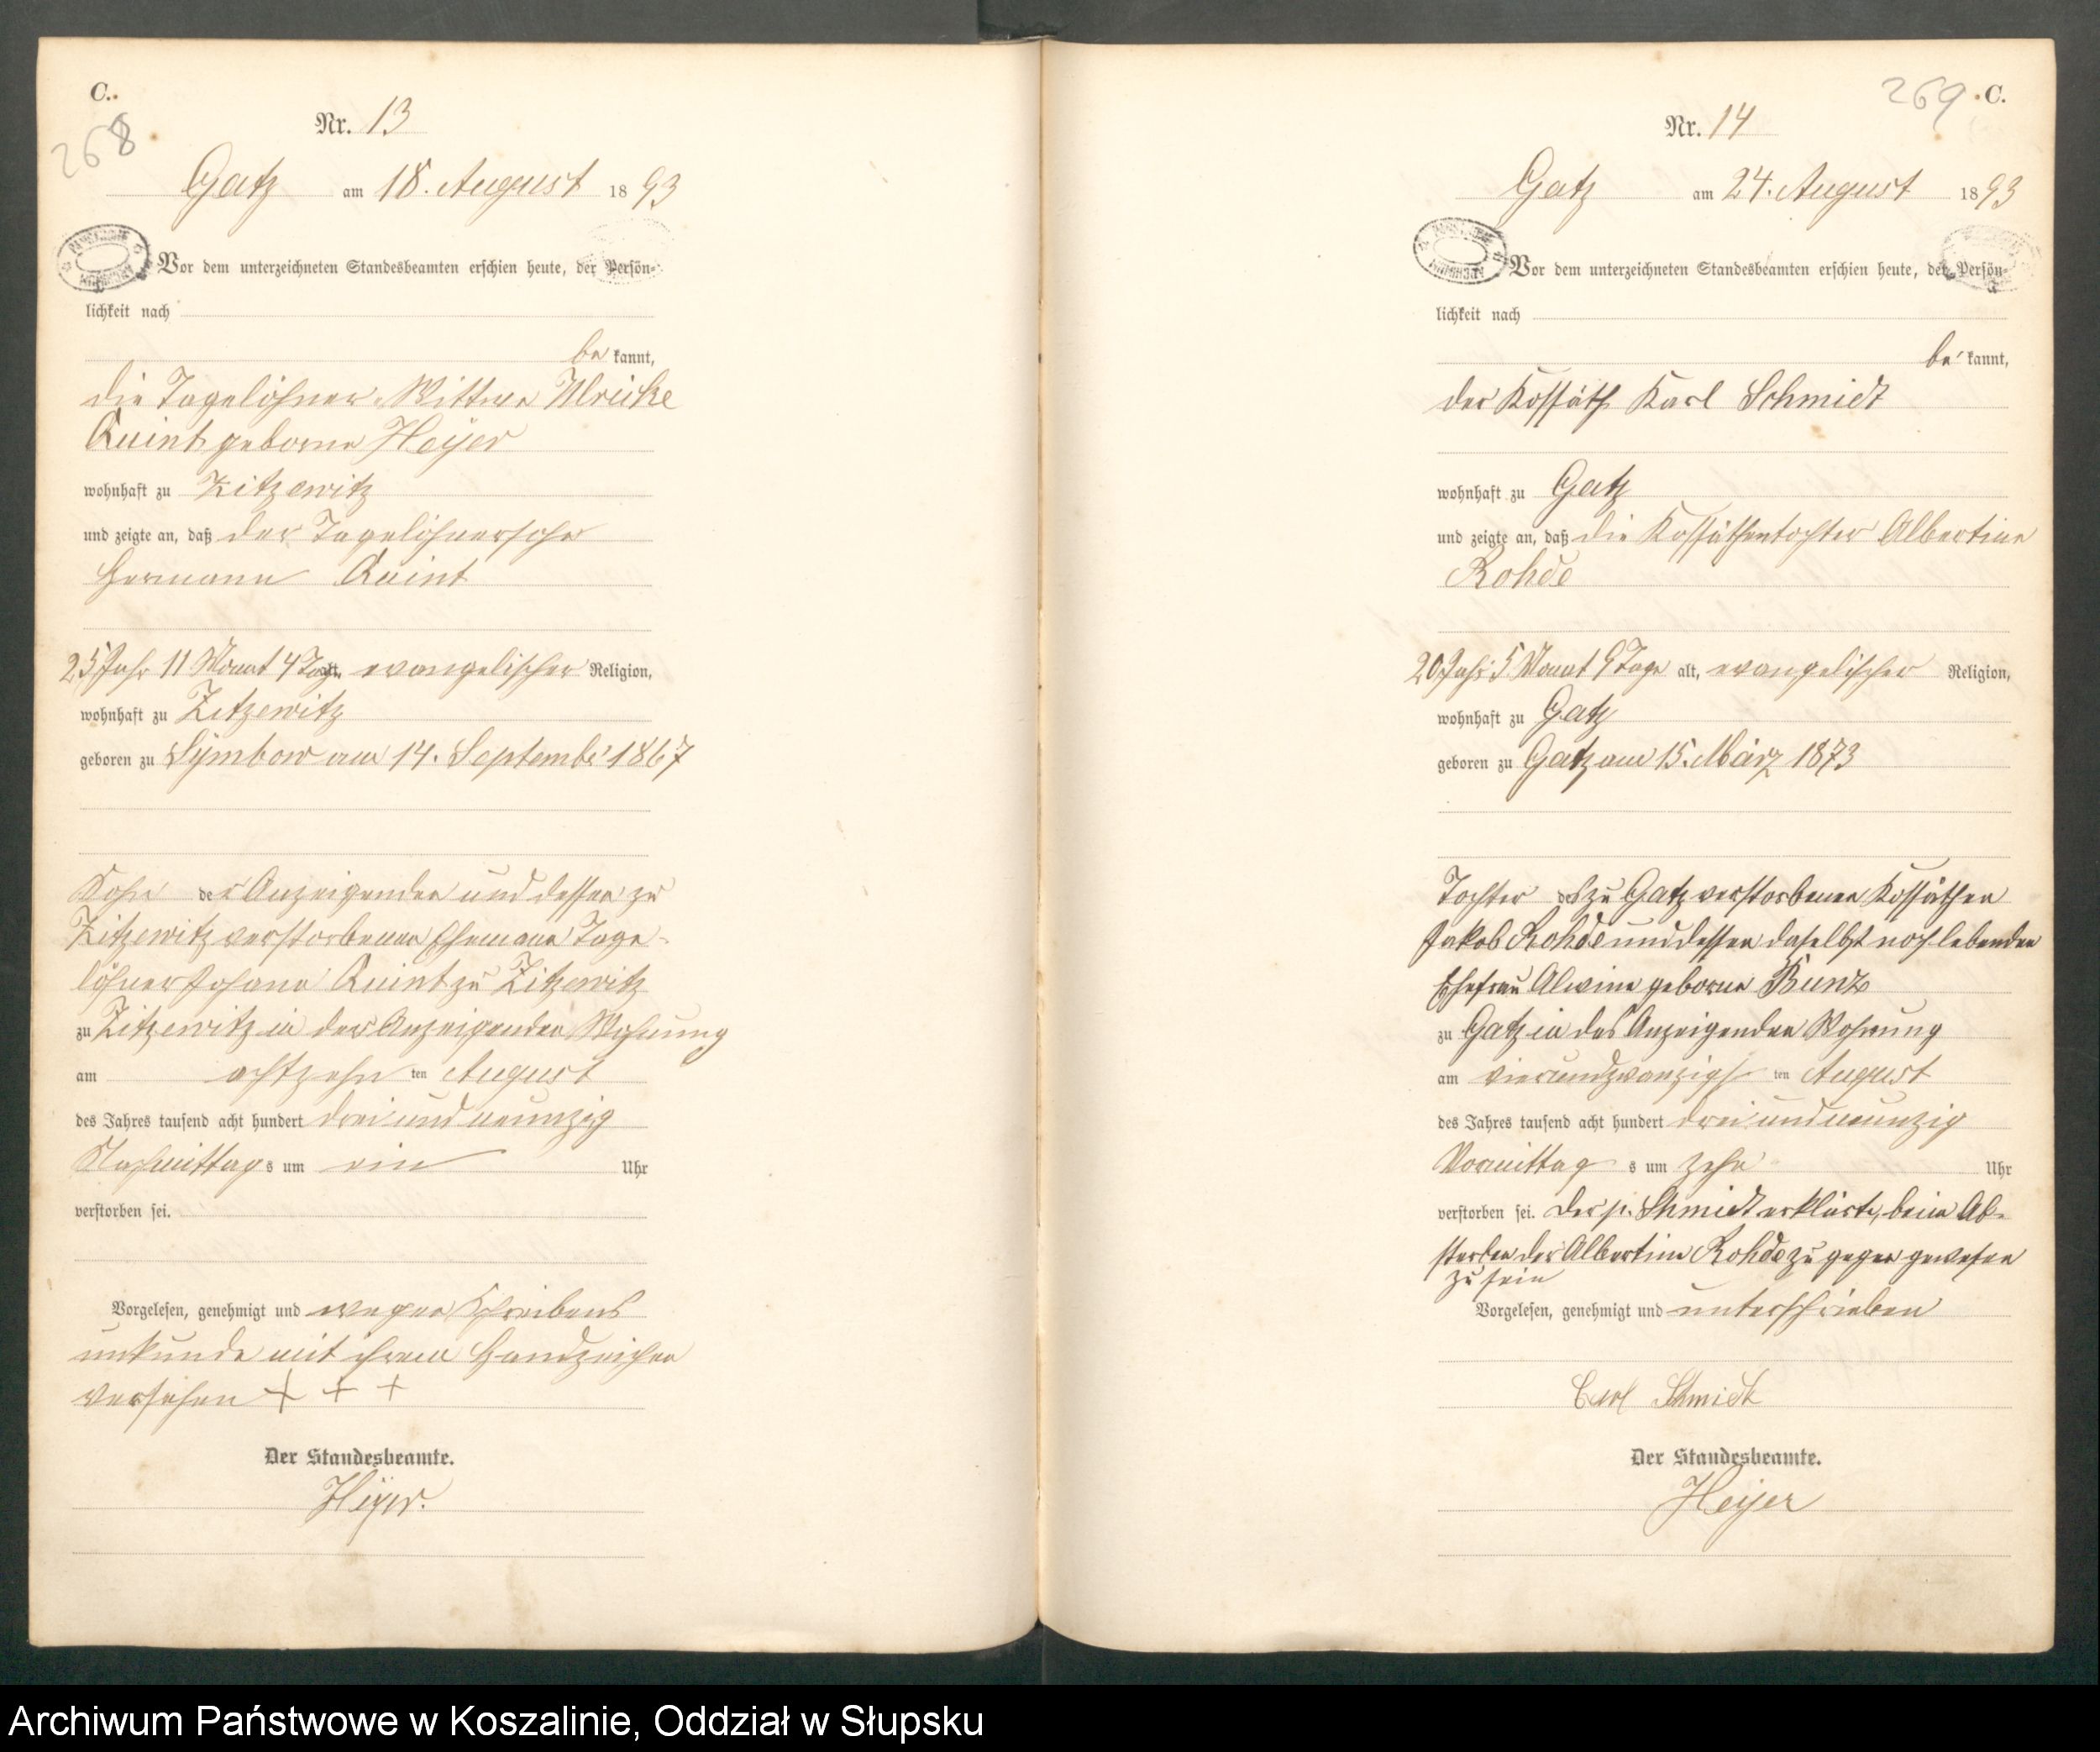 C.
268
Nr. 13
Gatz am 18. August 1893
Vor dem unterzeichneten Standesbeamten erschien heute, der Persön-
lichkeit nach
be kannt,
die Tagelöhner-Wittwe Ulricke
Quint geborne Heyer
wohnhaft zu Zitzewitz
und zeigte an, daß der Tagelöhnersohn
Hermann Quint
25 Jahr 11 Monat 4 Tage alt, evangelischer Religion,
wohnhaft zu Zitzewitz
geboren zu Symbow am 14. Septembr 1867
Sohn der Anzeigenden und dessen zu
Zitzewitz verstorbenen Ehemann Tage-
löhner Johann Quint zu Zitzewitz
zu Zitzewitz in der Anzeigenden Wohnung
am achtzehn ten August
des Jahres tausend acht hundert drei und neunzig
Nachmittags um ein Uhr
verstorben sei.
Vorgelesen, genehmigt und wegen Schreibens
unkunde mit ihrem Handzeichen
versehen + + +
Der Standesbeamte.
Heyer.
269
C.
Nr. 14
Gatz am 24. August 1893
Vor dem unterzeichneten Standesbeamten erschien heute, der Persön-
lichkeit nach
be kannt,
der Kossäth Karl Schmidt
wohnhaft zu Gatz
und zeigte an, daß die Kossäthentochter Albertine
Rohde
20 Jahr 5 Monat 9 Tage alt, evangelischer Religion,
wohnhaft zu Gatz
geboren zu Gatz am 15. März 1873
Tochter des zu Gatz verstorbenen Kossäthen
Jakob Rohde und dessen daselbst noch lebenden
Ehefrau Alwine geborne Bunz
zu Gatz in des Anzeigenden Wohnung
am vierundzwanzigs ten August
des Jahres tausend acht hundert drei und neunzig
Vormittag s um zehn Uhr
verstorben sei. Der p. Schmidt erklärte, beim Ab-
sterben der Albertine Rohde zu gegen gewesen
zu sein
Vorgelesen, genehmigt und unterschrieben
Carl Schmidt
Der Standesbeamte.
Heyer
Archiwum Państwowe w Koszalinie, Oddział w Słupsku